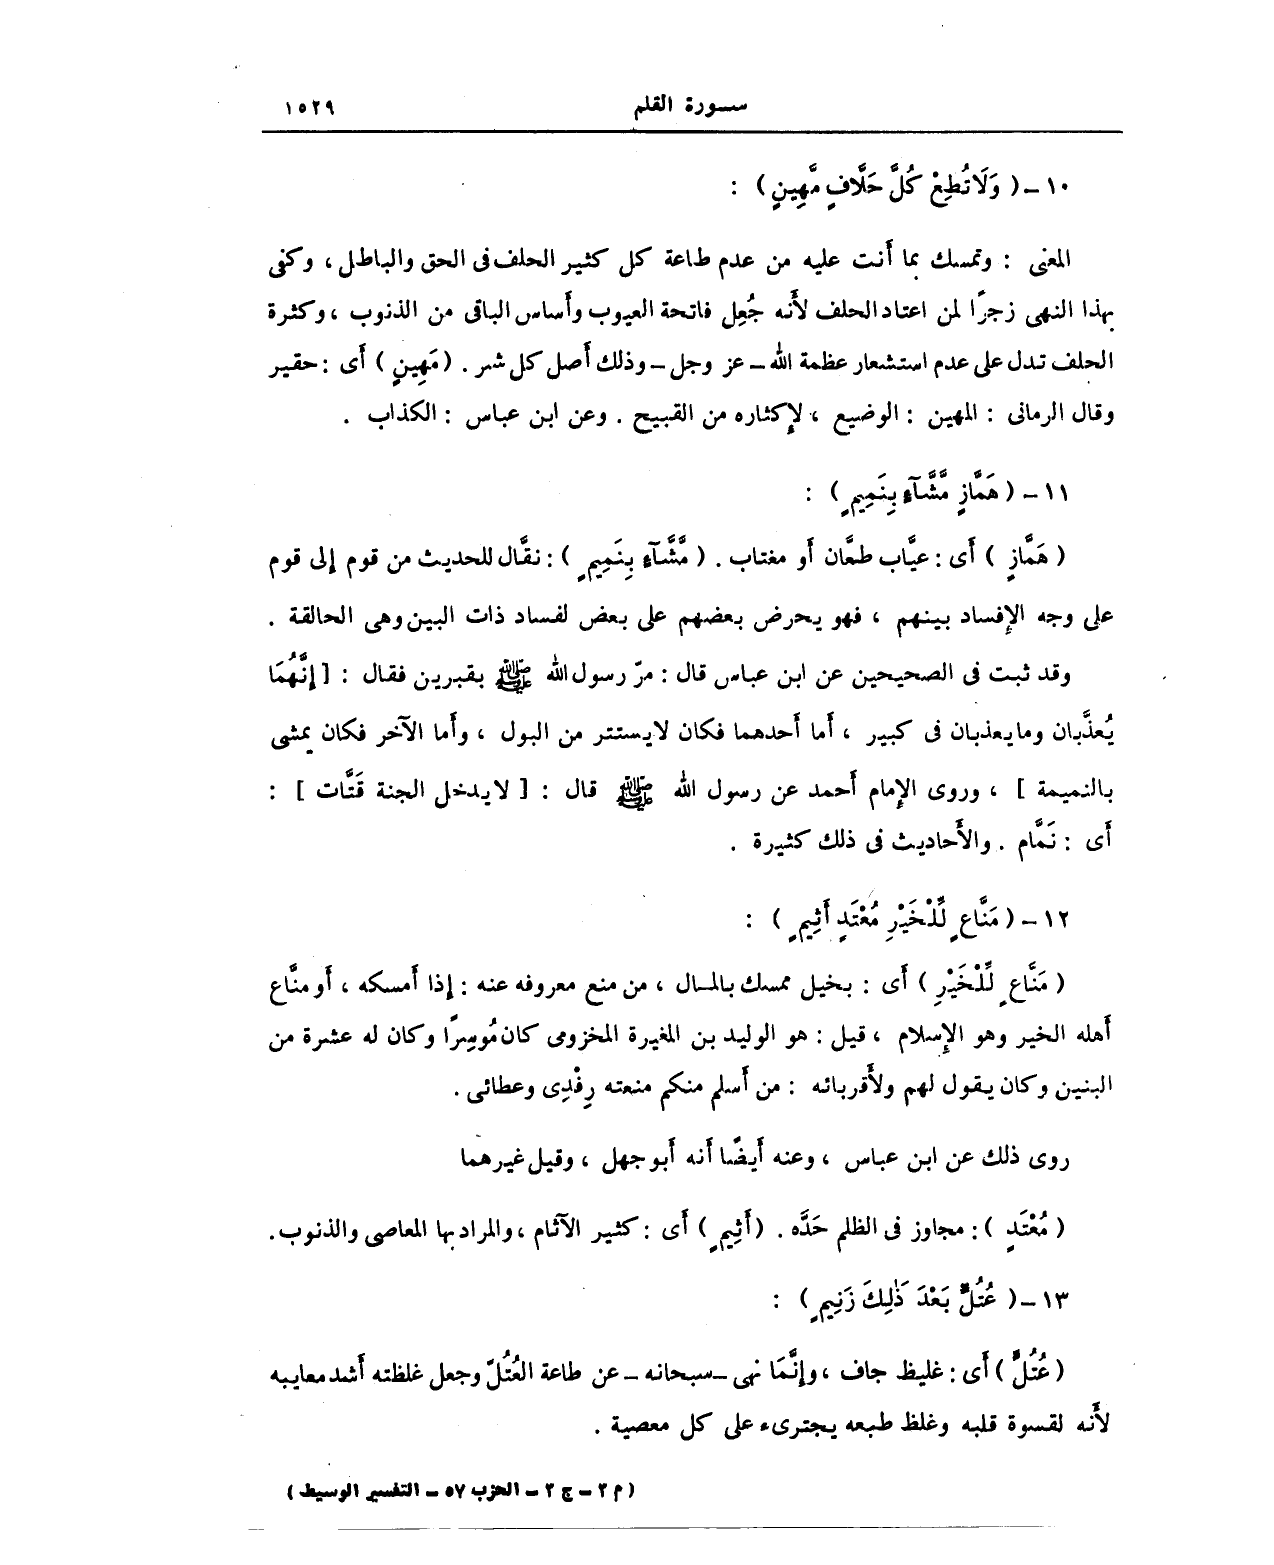 سورة القلم ١٥٢٩
١٠ - ( وَلَا تُطِعْ كُلَّ حَلَّافٍ مَّهِينٍ ) :
المعنى : وتمسك بما أَنت عليه من عدم طاعة كل كثير الحلف فى الحق والباطل ، وكفى
بهذا النهى زجرًا لمن اعتاد الحلف لأَنه جُعِل فاتحة العيوب وأَساس الباقى من الذنوب ، وكثرة
الحلف تدل على عدم استشعار عظمة الله - عز وجل - وذلك أَصل كل شر . ( مَهِينٍ ) أَى : حقير
وقال الرمانى : المهين : الوضيع ، لإِكثاره من القبيح . وعن ابن عباس : الكذاب .
١١ - ( هَمَّازٍ مَّشَّآءٍ بِنَمِيمٍ ) :
( هَمَّازٍ ) أَى : عيَّاب طعَّان أَو مغتاب . ( مَّشَّآءٍ بِنَمِيمٍ ) : نقَّال للحديث من قوم إلى قوم
على وجه الإِفساد بينهم ، فهو يحرض بعضهم على بعض لفساد ذات البين وهى الحالقة .
وقد ثبت فى الصحيحين عن ابن عباس قال : مرّ رسول الله ﷺ بقبرين فقال : [ إِنَّهُمَا
يُعذَّبان وما يعذبان فى كبير ، أَما أَحدهما فكان لا يستتر من البول ، وأَما الآخر فكان يمشى
بالنميمة ] ، وروى الإِمام أَحمد عن رسول الله ﷺ قال : [ لا يدخل الجنة قَتَّات ] :
أَى : نَمَّام . والأَحاديث فى ذلك كثيرة .
١٢ - ( مَنَّاعٍ لِّلْخَيْرِ مُعْتَدٍ أَثِيمٍ ) :
( مَنَّاعٍ لِّلْخَيْرِ ) أَى : بخيل ممسك بالمال ، من منع معروفه عنه : إِذا أَمسكه ، أَو منَّاع
أَهله الخير وهو الإِسلام ، قيل : هو الوليد بن المغيرة المخزومى كان مُوسِرًا وكان له عشرة من
البنين وكان يقول لهم ولأَقربائه : من أَسلم منكم منعته رِفْدِى وعطائى .
روى ذلك عن ابن عباس ، وعنه أَيضًا أَنه أَبو جهل ، وقيل غيرهما
( مُعْتَدٍ ) : مجاوز فى الظلم حَدَّه . ( أَثِيمٍ ) أَى : كثير الآثام ، والمراد بها المعاصى والذنوب .
١٣ - ( عُتُلٍّ بَعْدَ ذَٰلِكَ زَنِيمٍ ) :
( عُتُلٍّ ) أَى : غليظ جاف ، وإِنَّمَا نهى - سبحانه - عن طاعة العُتُلّ وجعل غلظته أَشد معايبه
لأَنه لقسوة قلبه وغلظ طبعه يجترىء على كل معصية .
( م ٣ - ج ٣ - الحزب ٥٧ - التفسير الوسيط )